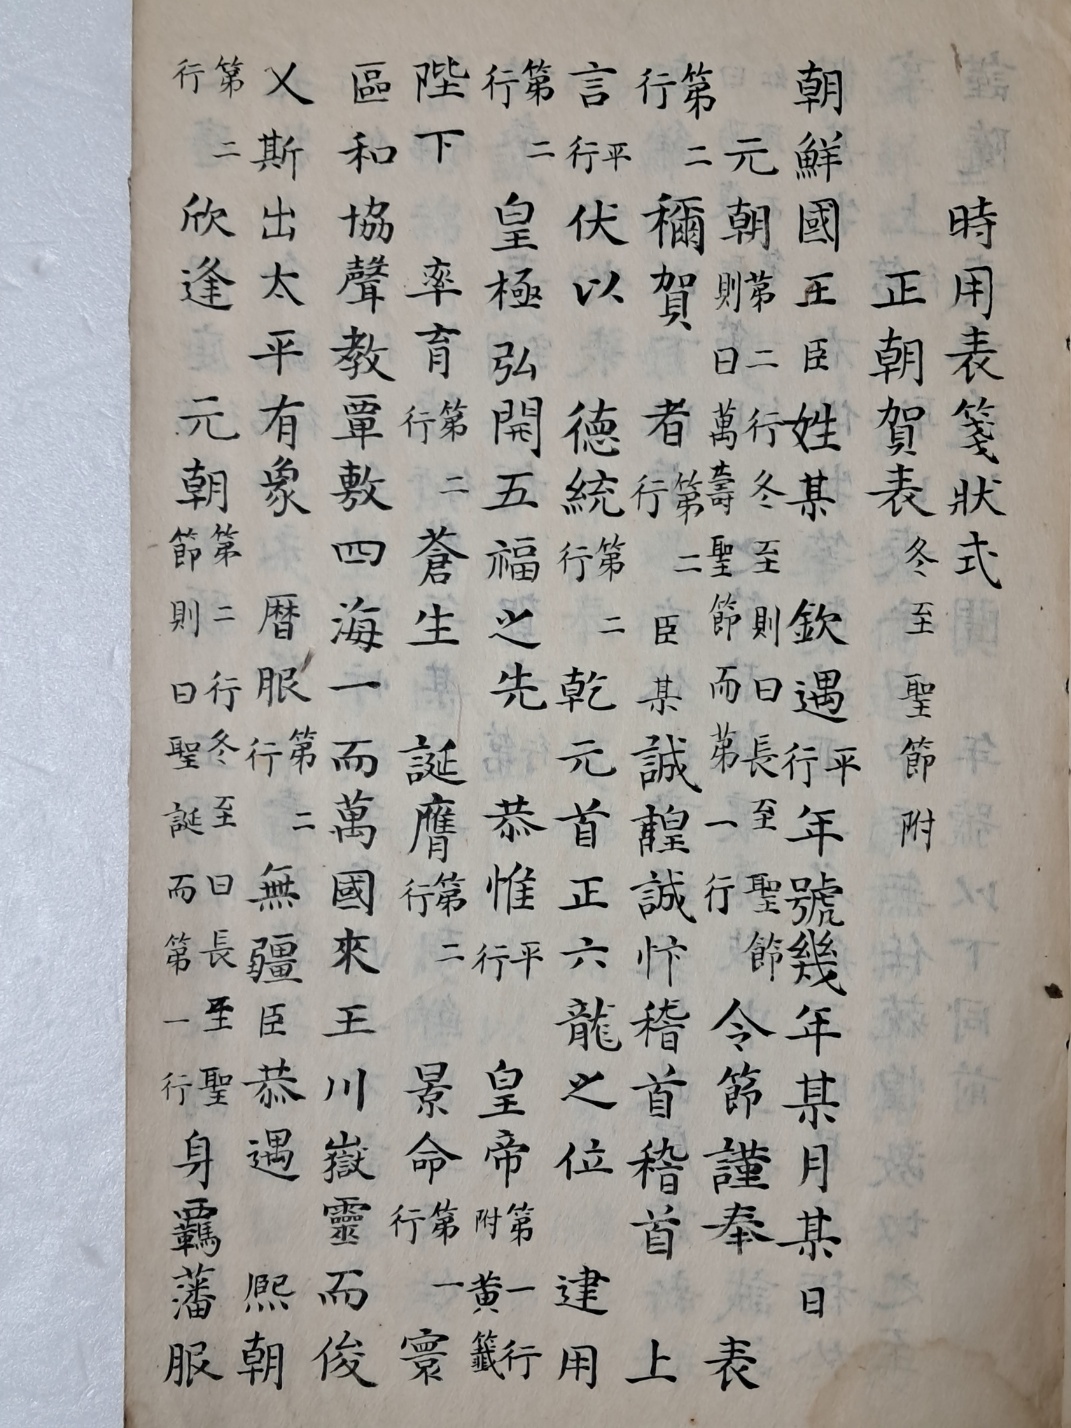 時用表箋狀式
正朝賀表冬至聖節附
朝鮮國王臣姓某 欽遇平行年號幾年某月某日
元朝第二行冬至則曰長至聖節則曰萬壽聖節而第一行令節謹奉 表
第二行稱賀者第二行臣某誠懽誠忭稽首稽首 上
言平行伏以 德統第二行乾元首正六龍之位 建用
第二行皇極弘開五福之先 恭惟平行 皇帝第一行附黄籤
陛下 率育第二行蒼生 誕膺第二行景命第一行寰
區和協聲教覃敷四海一而萬國來王川嶽靈而俊
乂斯出太平有象 曆服第二行無疆臣恭遇 熙朝
第二行欣逢 元朝第二行冬至曰長至聖節則曰聖誕而第一行身覊藩服